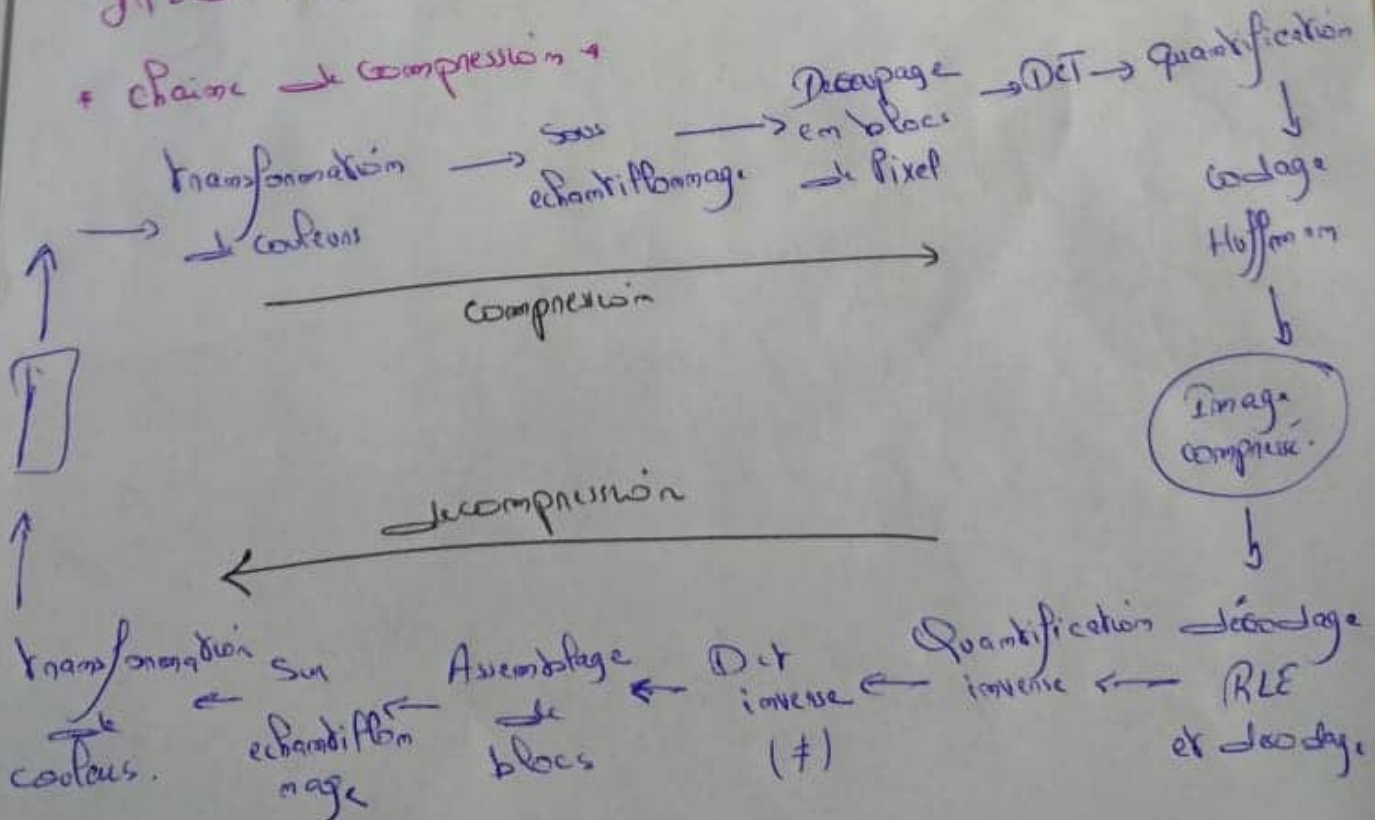 * chaine de compression *
transformation
de couleurs
sous
echantillonnage
Decoupage
en blocs
de Pixel
DCT
Quantification
codage
Huffman
compression
Image
compressé.
decompression
décodage
RLE
et decodage
Quantification
inverse
Dct
inverse
(≠)
Assemblage
de
blocs
Sur
echantillon
nage
transformation
de
couleurs.